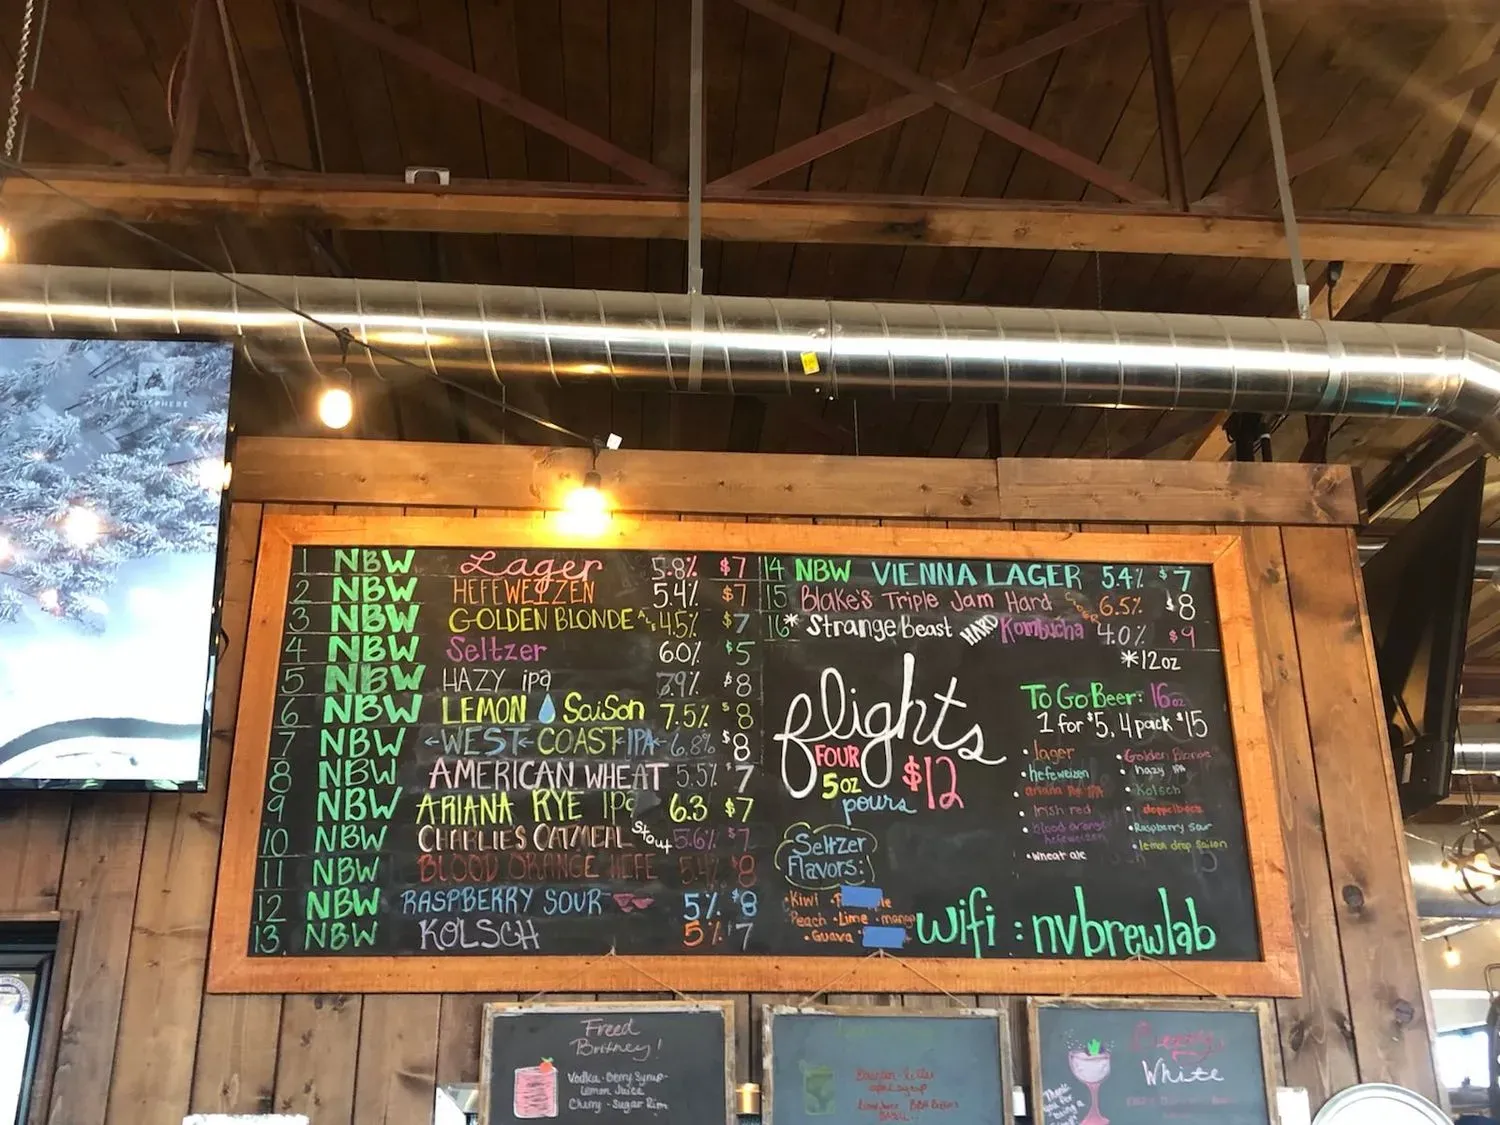 ATMOSPHERE
1 NBW Lager 5.8% $7
2 NBW HEFEWEIZEN 5.4% $7
3 NBW GOLDEN BLONDE ALE 4.5% $7
4 NBW Seltzer 6.0% $5
5 NBW HAZY ipa 7.9% $8
6 NBW LEMON SaiSon 7.5% $8
7 NBW WEST COAST IPA 6.8% $8
8 NBW AMERICAN WHEAT 5.5% $7
9 NBW ARIANA RYE IPa 6.3 $7
10 NBW CHARLIE'S OATMEAL stout 5.6% $7
11 NBW BLOOD ORANGE HEFE 5.4% $8
12 NBW RASPBERRY SOUR 5% $8
13. NBW KOLSCH 5% $7
14 NBW VIENNA LAGER 5.4% $7
15 Blake's Triple Jam Hard CIDER 6.5% $8
16* Strange Beast HARD Kombucha 4.0% $9
*12oz
flights
FOUR
5oz
pours
$12
To Go Beer: 16oz
1 for $5, 4 pack $15
• lager
• hefeweizen
• ariana Rye IPA
• Irish red
• blood orange
hefeweizen
• wheat ale
• Golden Blonde
• hazy IPA
• Kolsch
• doppelbock
• Raspberry Sour
• lemon drop saison
Seltzer
Flavors:
• Kiwi
Peach • Lime • mango
• Guava
wifi : nvbrewlab
Freed
Britney!
Vodka • Berry Syrup
Lemon Juice
Cherry • Sugar Rim
White